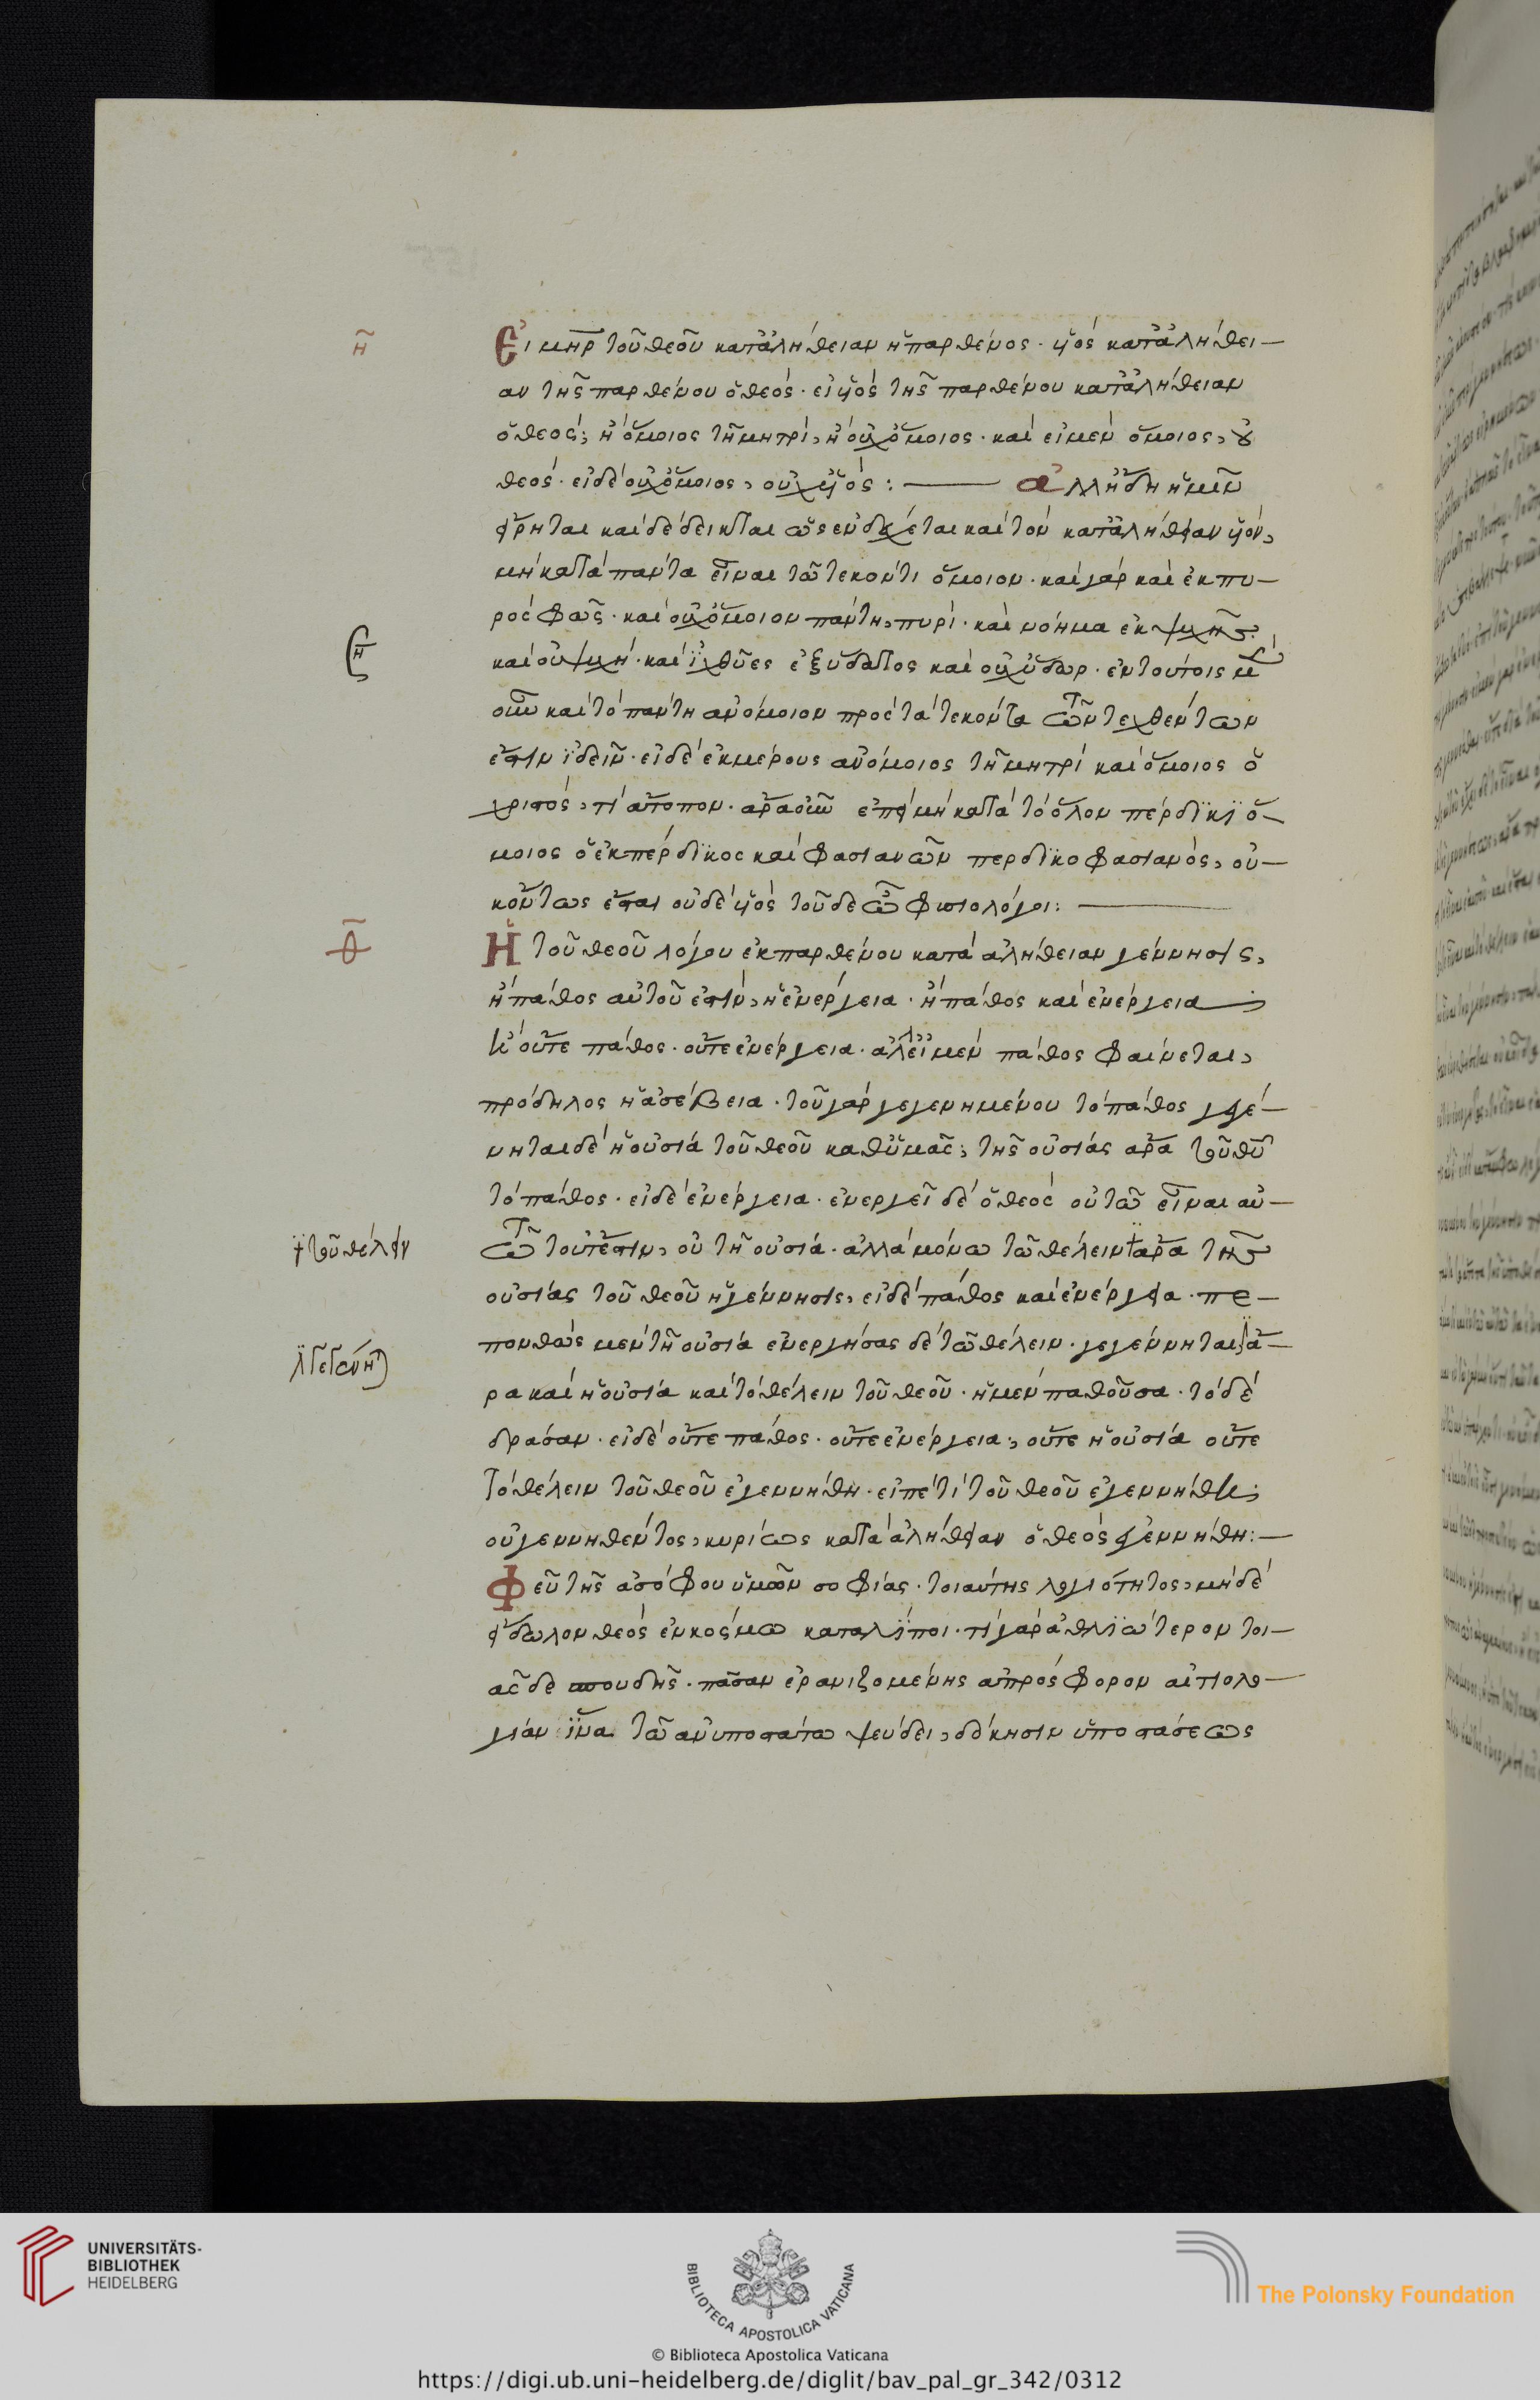 η̃
Εἰ μη̅ρ τοῦ θεοῦ κατ' ἀλήθειαν ἡ παρθένος · υἱὸς κατ' ἀλήθει-
αν τῆς παρθένου ὁ θεός · εἰ υἱὸς τῆς παρθένου κατ' ἀλήθειαν
ὁ θεός; ἢ ὅμοιος τῆ μητρὶ, ἢ οὐχ ὅμοιος · καὶ εἰ μὲν ὅμοιος, οὐ
θεός · εἰ δὲ οὐχ ὅμοιος, οὐχ υἱός : — ἀλλ' ἤδη ἡμῖν
εἴρηται καὶ δέδεικται ὡς ἐνδέχεται καὶ τὸν κατ' ἀλήθειαν υἱὸν,
μὴ κατὰ πάντα εἶναι τῶ τεκόντι ὅμοιον · καὶ γὰρ καὶ ἐκ πυ-
ρὸς φῶς · καὶ οὐχ ὅμοιον πάντη πυρί · καὶ νόημα ἐκ ψυχῆς
καὶ οὐ ψυχή · καὶ ἰχθύες ἐξ ὕδατος καὶ οὐχ ὕδωρ · ἐν τούτοις μὲν
οὖν καὶ τὸ πάντη ἀνόμοιον πρὸς τὰ τεκόντα τῶν τεχθέντων
ἐστὶν ἰδεῖν · εἰ δὲ ἐκ μέρους ἀνόμοιος τῆ μητρὶ καὶ ὅμοιος ὁ
χριστός, τί ἄτοπον · ἆρα οὖν ἐπεὶ μὴ κατὰ τὸ ὅλον πέρδικι ὅ-
μοιος ὁ ἐκ πέρδικος καὶ φασιανῶν περδικοφασιανὸς, οὐ-
κ ὄντως ἔσται οὐδὲ υἱὸς τοῦδε ὦ φυσιολόγοι : —
θ̅
Ἡ τοῦ θεοῦ λόγου ἐκ παρθένου κατὰ ἀλήθειαν γέννησις,
ἢ πάθος αὐτοῦ ἐστὶν, ἢ ἐνέργεια · ἢ πάθος καὶ ἐνέργεια
ἢ οὔτε πάθος · οὔτε ἐνέργεια · ἀλλ' εἰ μὲν πάθος φαίνεται,
πρόδηλος ἡ ἀσέβεια · τοῦ γὰρ γεγενημένου τὸ πάθος γεγέ-
νηται δὲ ἡ οὐσία τοῦ θεοῦ καθ' ὑμᾶς; τῆς οὐσίας ἄρα τοῦ θυ̅
τὸ πάθος · εἰ δὲ ἐνέργεια · ἐνεργεῖ δὲ ὁ θεὸς οὐ τῶ εἶναι αὐ-
τῶ τουτέστιν, οὐ τῆ οὐσία · ἀλλὰ μόνω τῶ θέλειν ἄρα τῆς
τοῦ θέλειν
οὐσίας τοῦ θεοῦ ἡ γέννησις, εἰ δὲ πάθος καὶ ἐνέργεια · πε-
πονθὼς μὲν τῆ οὐσία ἐνεργήσας δὲ τῶ θέλειν · γεγέννηται ἄ-
ρα καὶ ἡ οὐσία καὶ τὸ θέλειν τοῦ θεοῦ · ἡ μὲν παθοῦσα · τὸ δὲ
δράσαν · εἰ δὲ οὔτε πάθος · οὔτε ἐνέργεια, οὔτε ἡ οὐσία οὔτε
τὸ θέλειν τοῦ θεοῦ ἐγεννήθη · εἰπὲ τί τοῦ θεοῦ ἐγεννήθη;
οὗ γεννηθέντος, κυρίως κατὰ ἀλήθειαν ὁ θεὸς γεννήθη : —
Φεῦ τῆς ἀσόφου ὑμῶν σοφίας · τοιαύτης λογιότητος, μὴ δὲ
εἴδωλον θεὸς ἐν κόσμω καταλίποι · τί γὰρ ἀθλιώτερον τοι-
ᾶσδε σπουδῆς · πᾶσαν ἐρανιζομένης ἀπρόσφορον αἰτιολο-
γίαν ἵνα τῶ ἀνυποστάτω ψεύδει, δόκησιν ὑποστάσεως
UNIVERSITÄTS-
BIBLIOTHEK
HEIDELBERG
BIBLIOTECA APOSTOLICA VATICANA
The Polonsky Foundation
© Biblioteca Apostolica Vaticana
https://digi.ub.uni-heidelberg.de/diglit/bav_pal_gr_342/0312